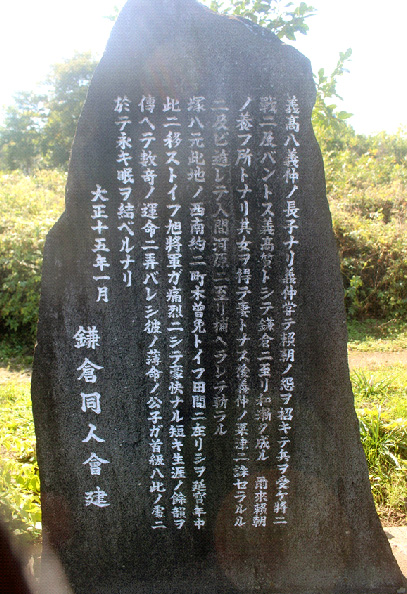 義高ハ義仲ノ長子ナリ義仲嘗テ頼朝ノ怨ヲ招キテ兵ヲ受ケ將ニ
戰ニ及バントス義高質トシテ鎌倉ニ至リ和漸ク成ル 爾來頼朝
ノ養フ所トナリ其女ヲ得テ妻トナス後義仲ノ粟津ニ誅セラルル
ニ及ビ遁レテ入間河原ニ至リ捕ヘラレテ斬ラル
塚ハ元此地ノ西南約二町木曾免トイフ田間ニ在リシヲ延寶年中
此ニ移ストイフ旭將軍ガ痛烈ニシテ豪快ナル短キ生涯ノ餘韻ヲ
傳ヘテ數奇ノ運命ニ弄バレシ彼ノ薄命ノ公子ガ首級ハ此ノ處ニ
於テ永キ眠ヲ結ベルナリ
大正十五年一月
鎌倉同人會建